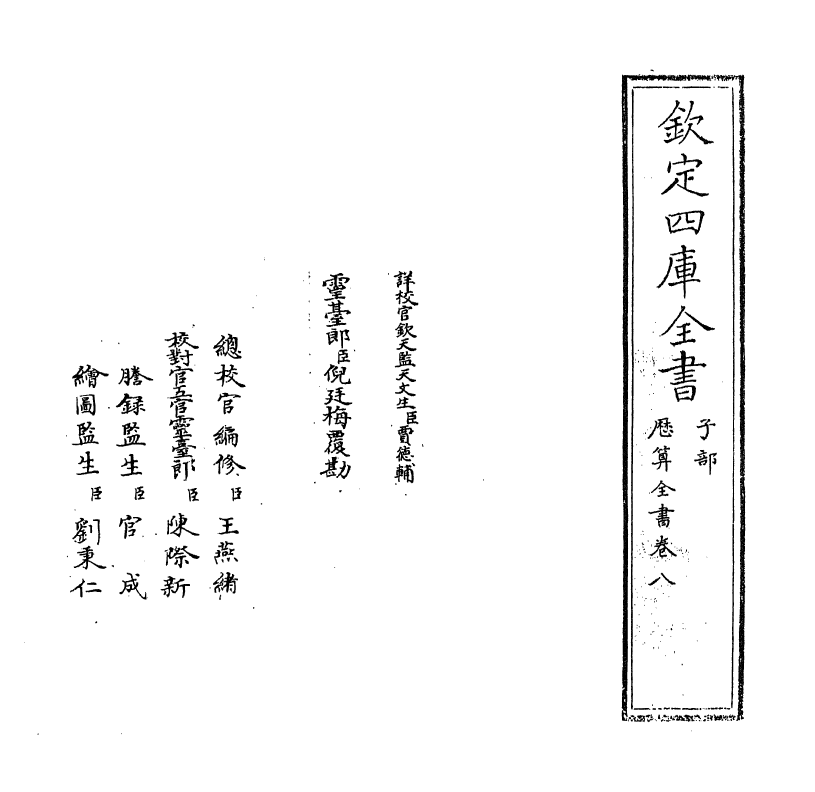 欽定四庫全書
子部
厯算全書卷八
詳校官欽天監天文生臣賈徳輔
靈臺郎臣倪廷梅覆勘
總校官編修臣王燕緒
校對官五官靈臺郎臣陳際新
謄録監生臣官成
繪圖監生臣劉秉仁